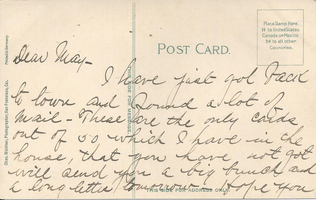 Dear May-
POST CARD.
Place Stamp Here.
1¢ to United States
Canada or Mexico
2¢ to all other
Countries.
I have just got back
to town and found a lot of
mail - These are the only cards
out of 50 which I have in the
house, that you have not got
will send you a big bunch and
a long letter tomorrow. Hope you
THIS SIDE FOR ADDRESS ONLY.